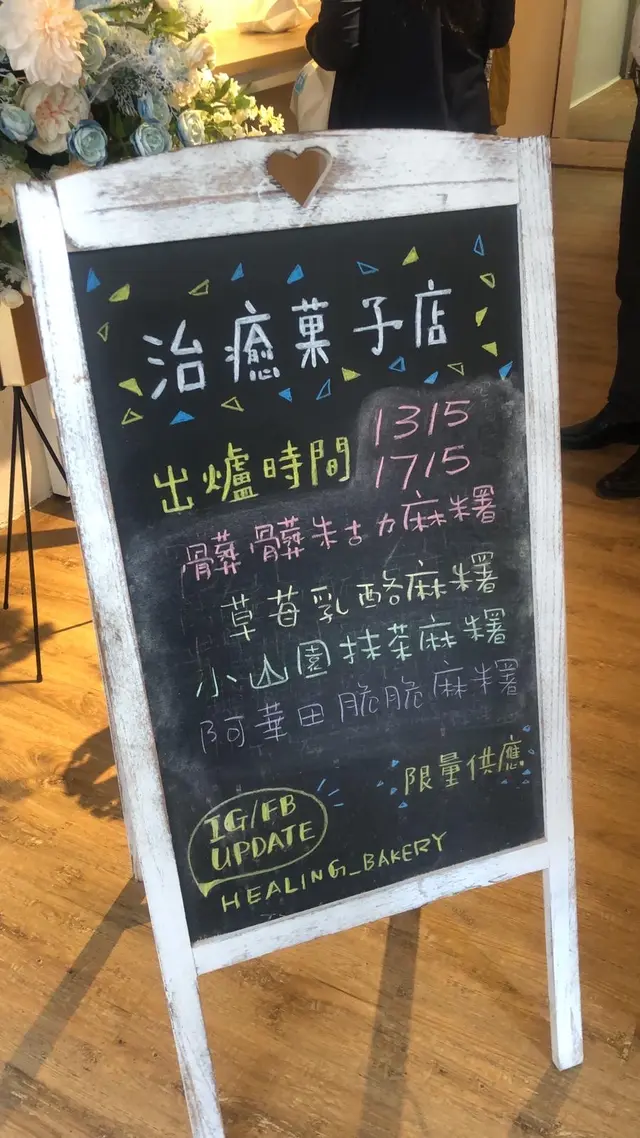 治癒菓子店
出爐時間 1315
1715
髒髒朱古力麻糬
草苺乳酪麻糬
小山園抹茶麻糬
阿華田脆脆麻糬
限量供應
IG/FB
UPDATE
HEALING_BAKERY